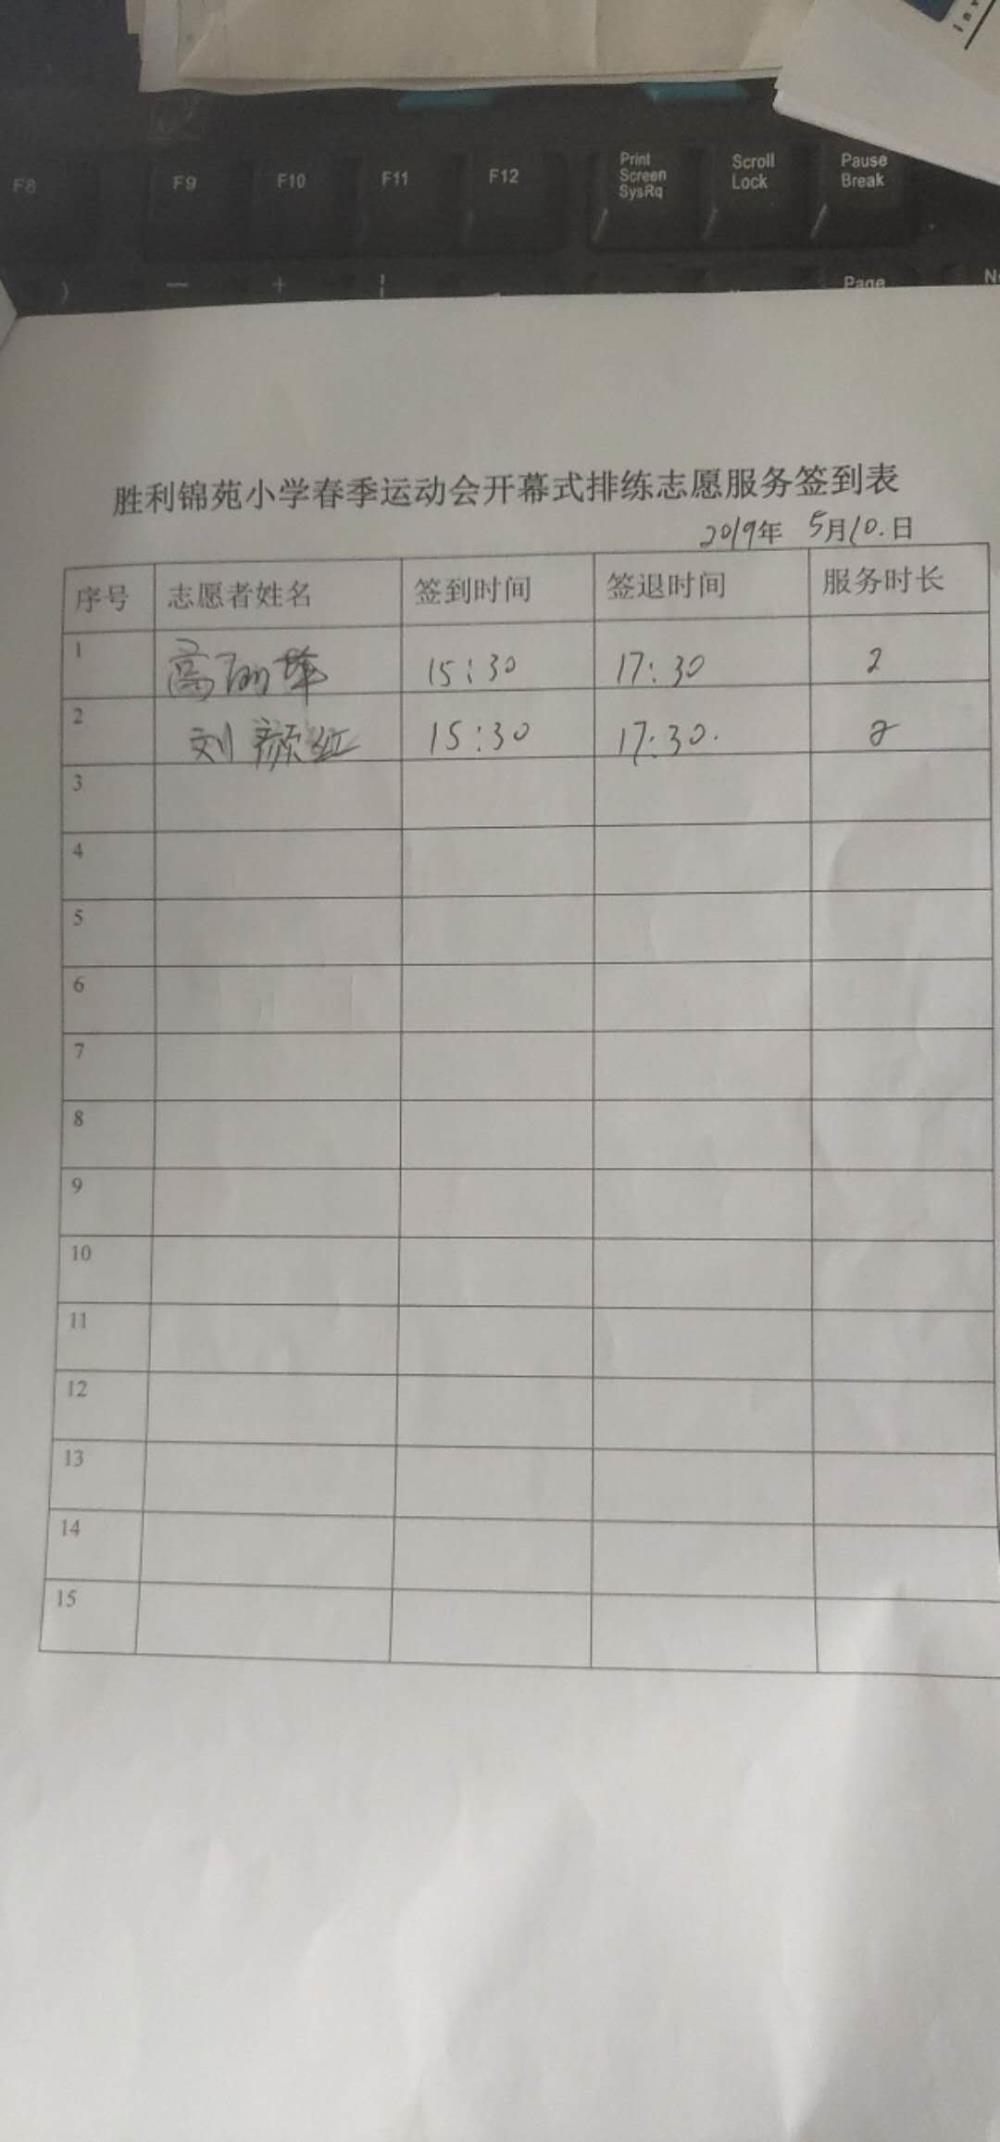 F8 F9 F10 F11 F12 Print Screen SysRq Scroll Lock Pause Break
) — + Page
胜利锦苑小学春季运动会开幕式排练志愿服务签到表
2019年 5月10.日
序号 志愿者姓名 签到时间 签退时间 服务时长
1 高丽 15:30 17:30 2
2 刘颜红 15:30 17:30. 2
3
4
5
6
7
8
9
10
11
12
13
14
15